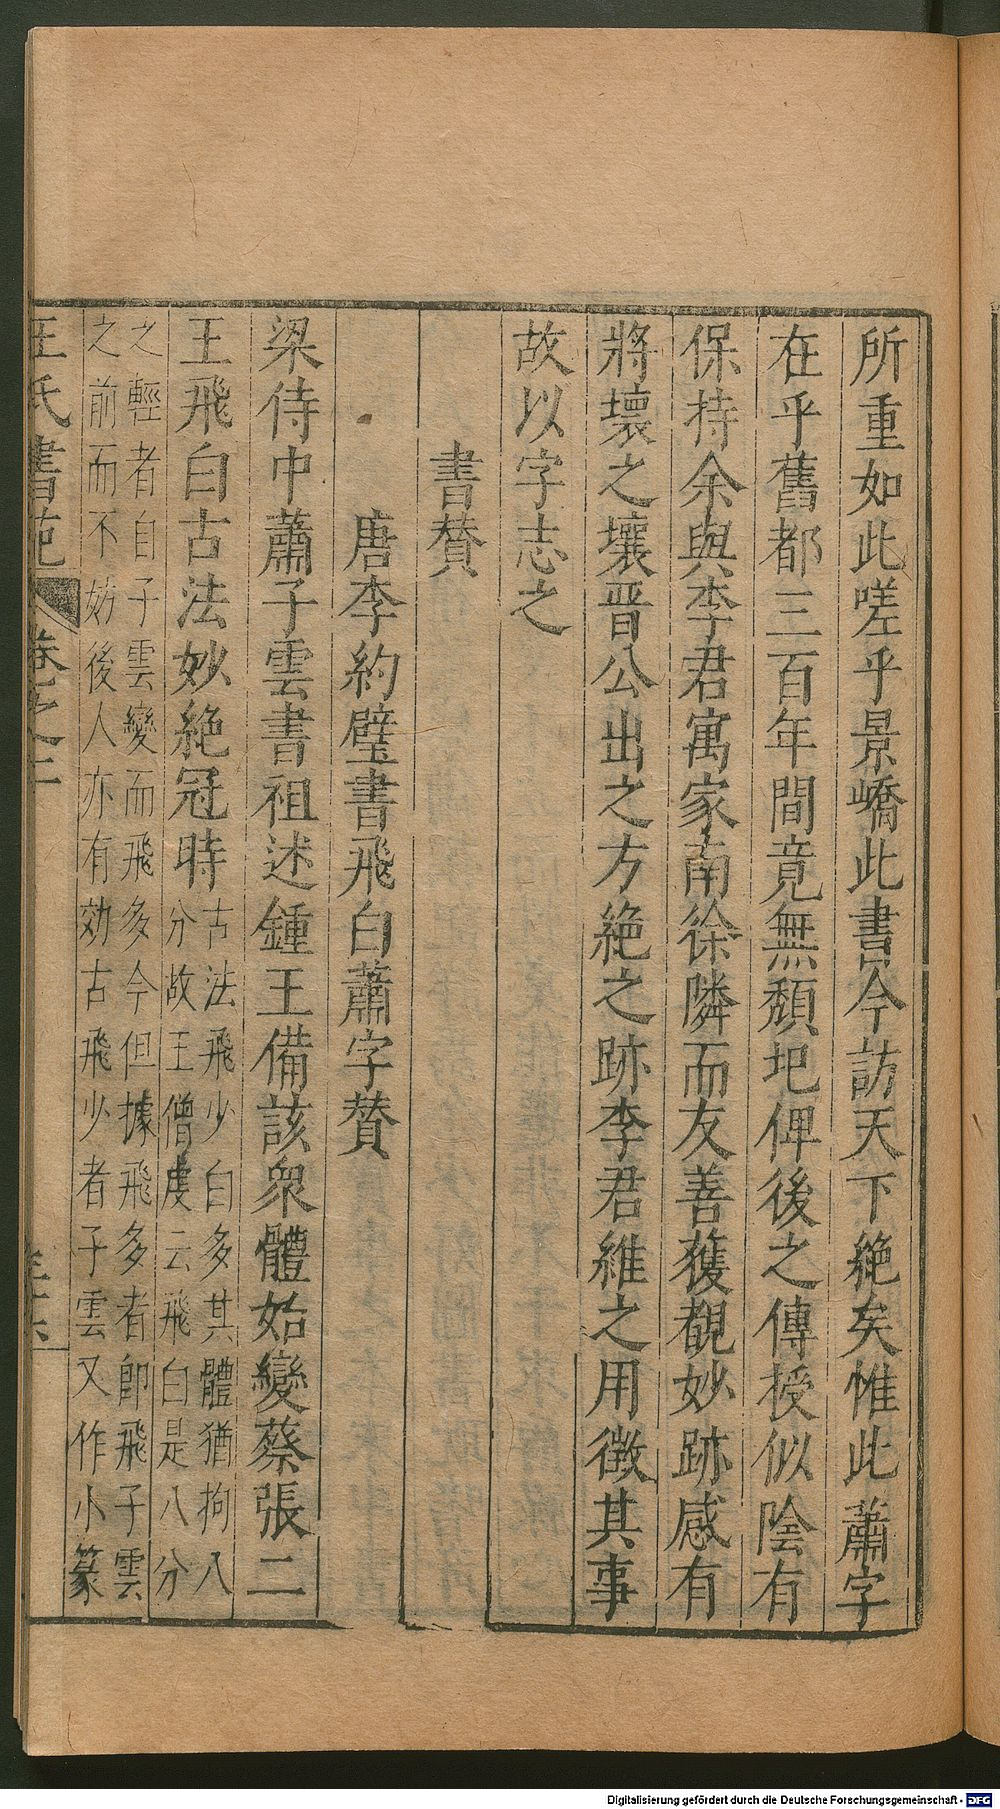 所重如此嗟乎景嶠此書今訪天下絶矣惟此蕭字
在乎舊都三百年間竟無頽圯俾後之傳授似陰有
保持余與李君寓家南徐隣而友善獲覩妙跡感有
將壞之壤晋公出之方絶之跡李君維之用徵其事
故以字志之
書賛
唐李約壁書飛白蕭字賛
梁侍中蕭子雲書祖述鍾王備該衆體始變蔡張二
王飛白古法妙絶冠時
古法飛少白多其體猶拘八
分故王僧虔云飛白是八分
之輕者自子雲變而飛多今但據飛多者卽飛子雲
之前而不妨後人亦有効古飛少者子雲又作小篆
王氏書苑 卷之二
Digitalisierung gefördert durch die Deutsche Forschungsgemeinschaft - DFG